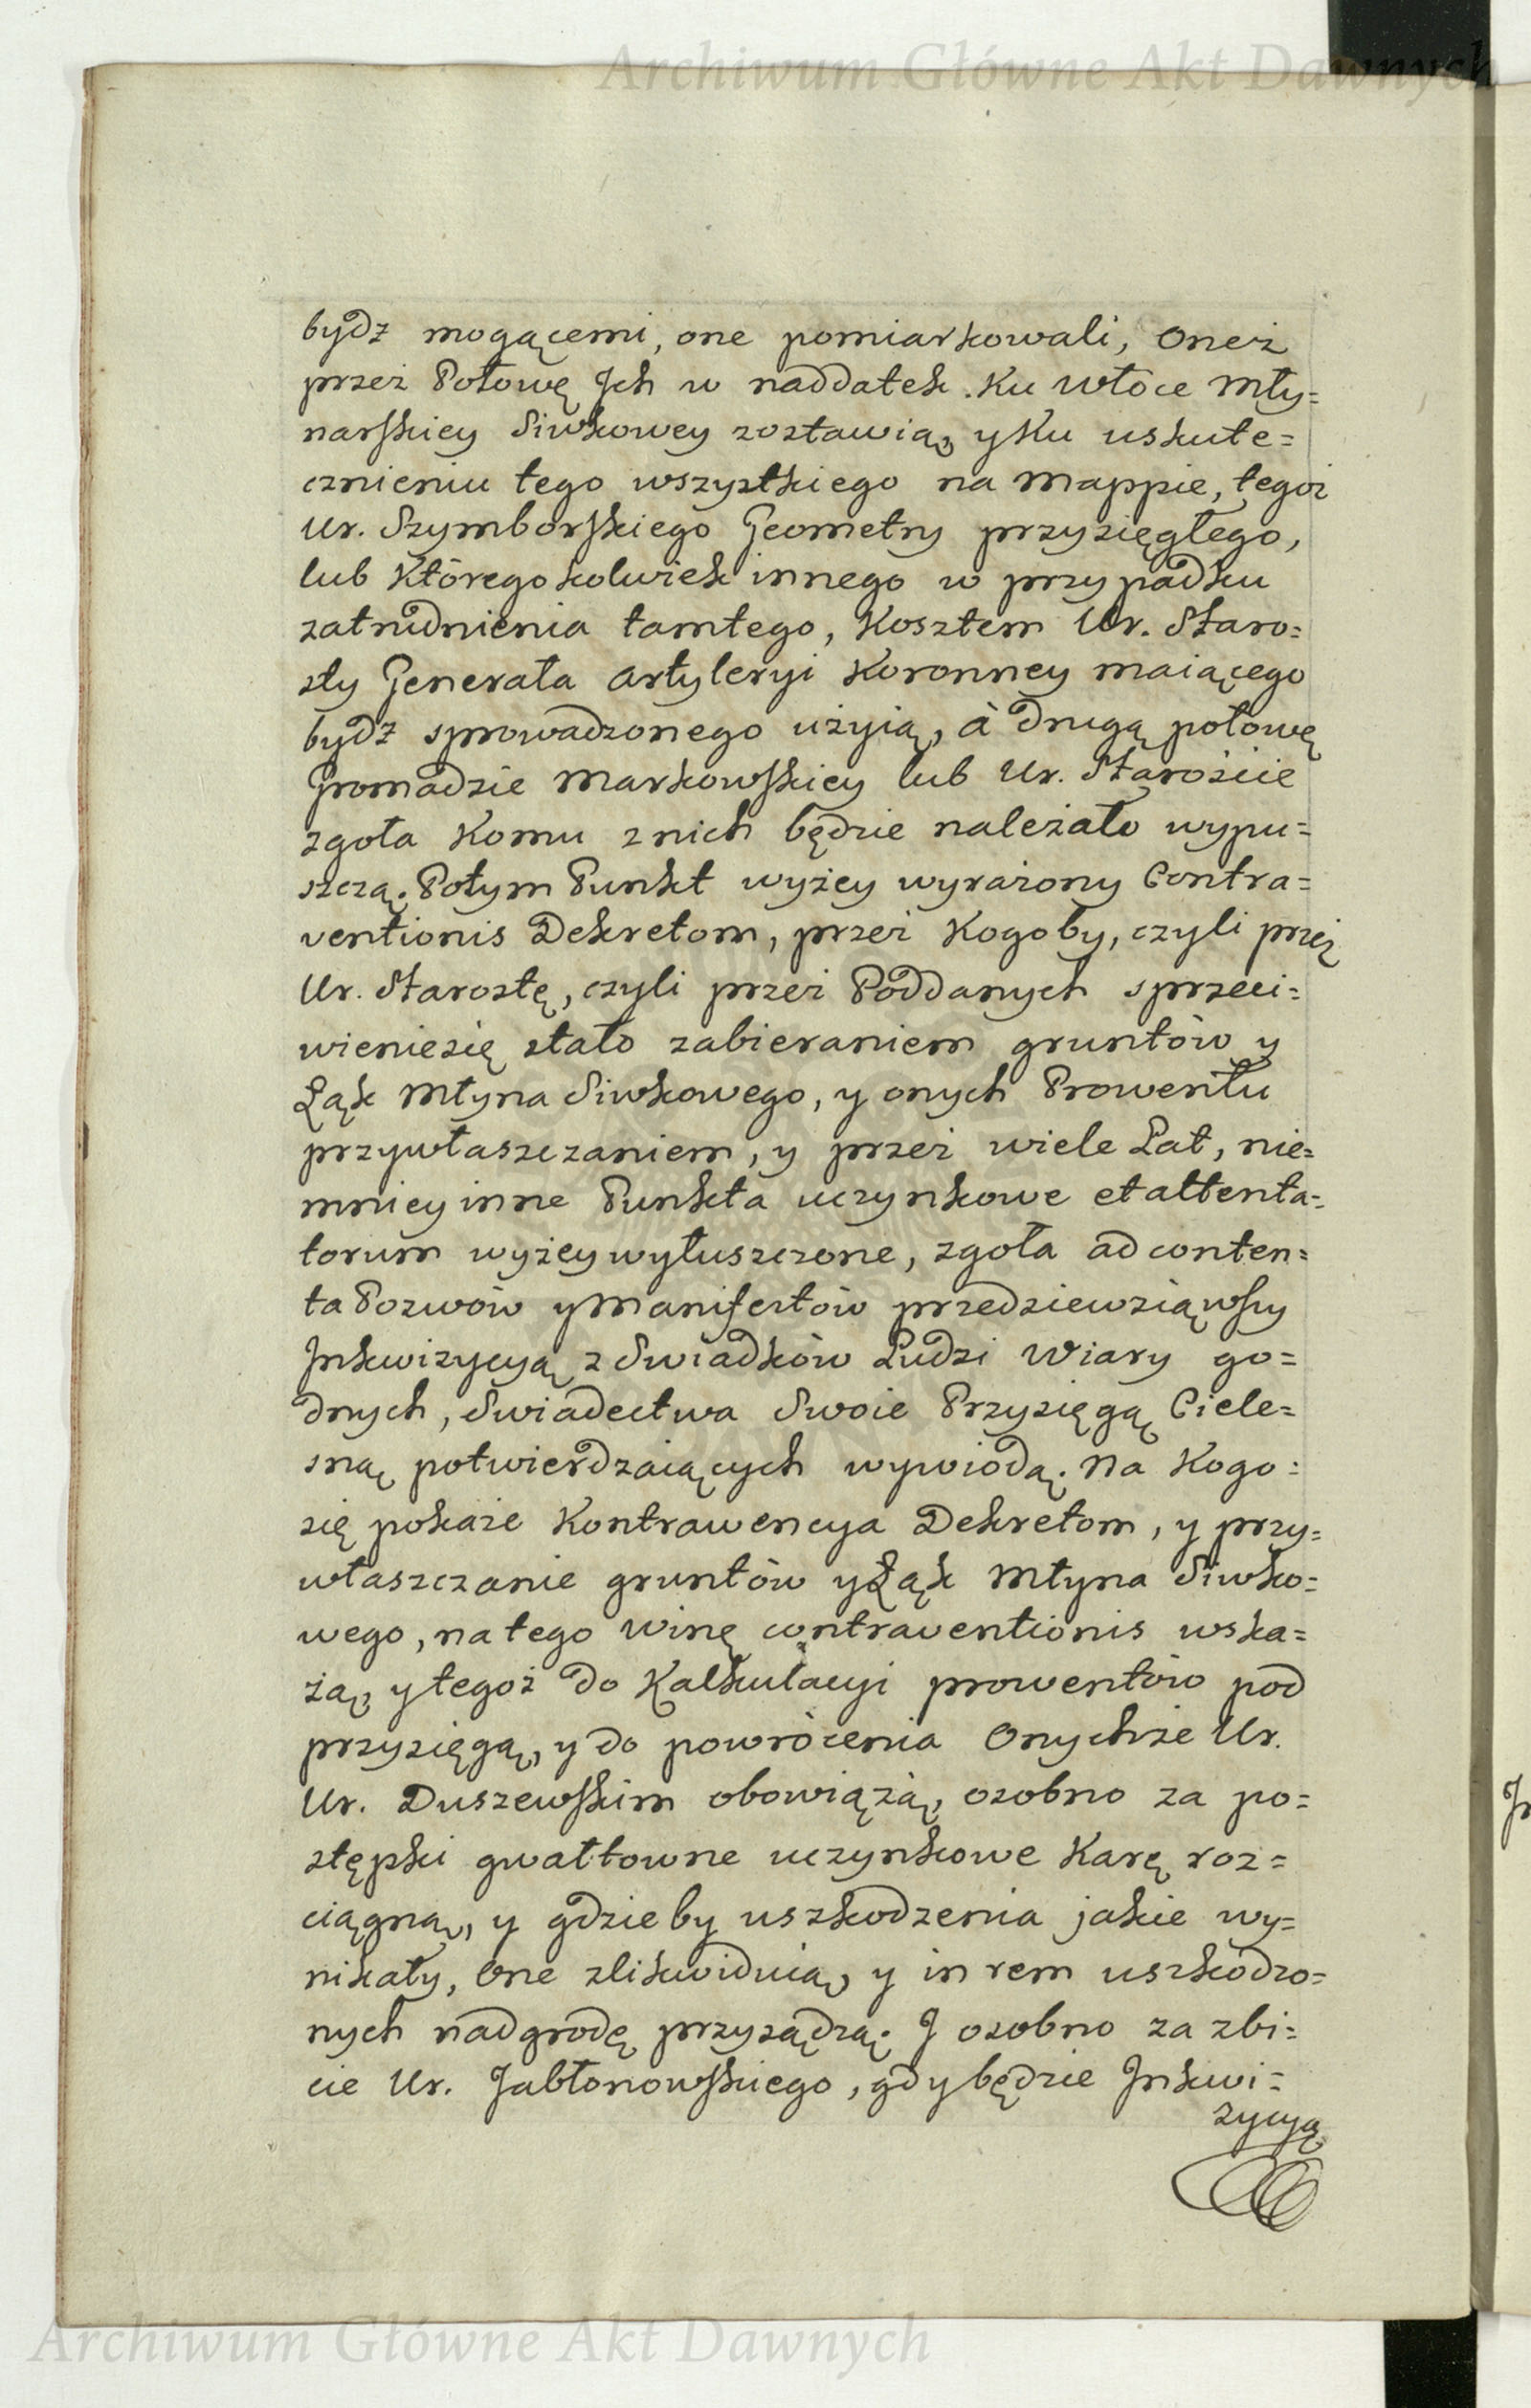 Archiwum Główne Akt Dawnych
bydź mogącemi, one pomiarkowali, Oneż
przez Połowę Jch w naddatek. Ku Włoce Mły=
narskiey Siwkowey zostawią, y Ku uskute=
cznieniu tego wszystkiego na Mappie, tegoż
Ur. Szymborskiego Geometry przysięgłego,
lub Któregokolwiek innego w przypadku
zatrudnienia tamtego, Kosztem Ur. Staro=
sty Generała Artyleryi Koronney maiącego
bydź sprowadzonego użyią, à drugą połowę
Gromadzie Markowskiey lub Ur. Starościie
zgoła Komu z nich będzie należało wypu=
szczą. Potym Punkt wyżey wyrażony Contra=
ventionis Dekretom, przez Kogoby, czyli przez
Ur. Starostę, czyli przez Poddanych sprzeci=
wieniesię stało zabieraniem gruntów y
Łąk Młyna Siwkowego, y onych Prowentu
przywłaszczaniem, y przez wiele Lat, nie=
mniey inne Punkta uczynkowe et attenta=
torum wyżey wyłuszczone, zgoła ad conten=
ta Pozwów y Manifestów przedziewziąwszy
Jnkwizycyą z Swiadków Ludzi Wiary go=
dnych, Swiadectwa Swoie Przysięgą Ciele=
sną potwierdzaiących wywiodą. Na Kogo=
się pokaże Kontrawencya Dekretom, y przy=
właszczanie gruntów y Łąk Młyna Siwko=
wego, na tego winę contraventionis wska=
żą, y tegoż do Kalkulacyi prowentów pod
przysięgą, y do powrócenia Onychże Ur.
Ur. Duszewskim obowiążą, osobno za po=
stępki gwałtowne uczynkowe Karę roz=
ciągną, y gdzieby uszkodzenia jakie wy=
nikały, One zlikwiduią, y in rem uszkodzo=
nych nadgrodę przysądzą. J osobno za zbi=
cie Ur. Jabłonowskiego, gdy będzie Jnkwi=
zycyą
Archiwum Główne Akt Dawnych